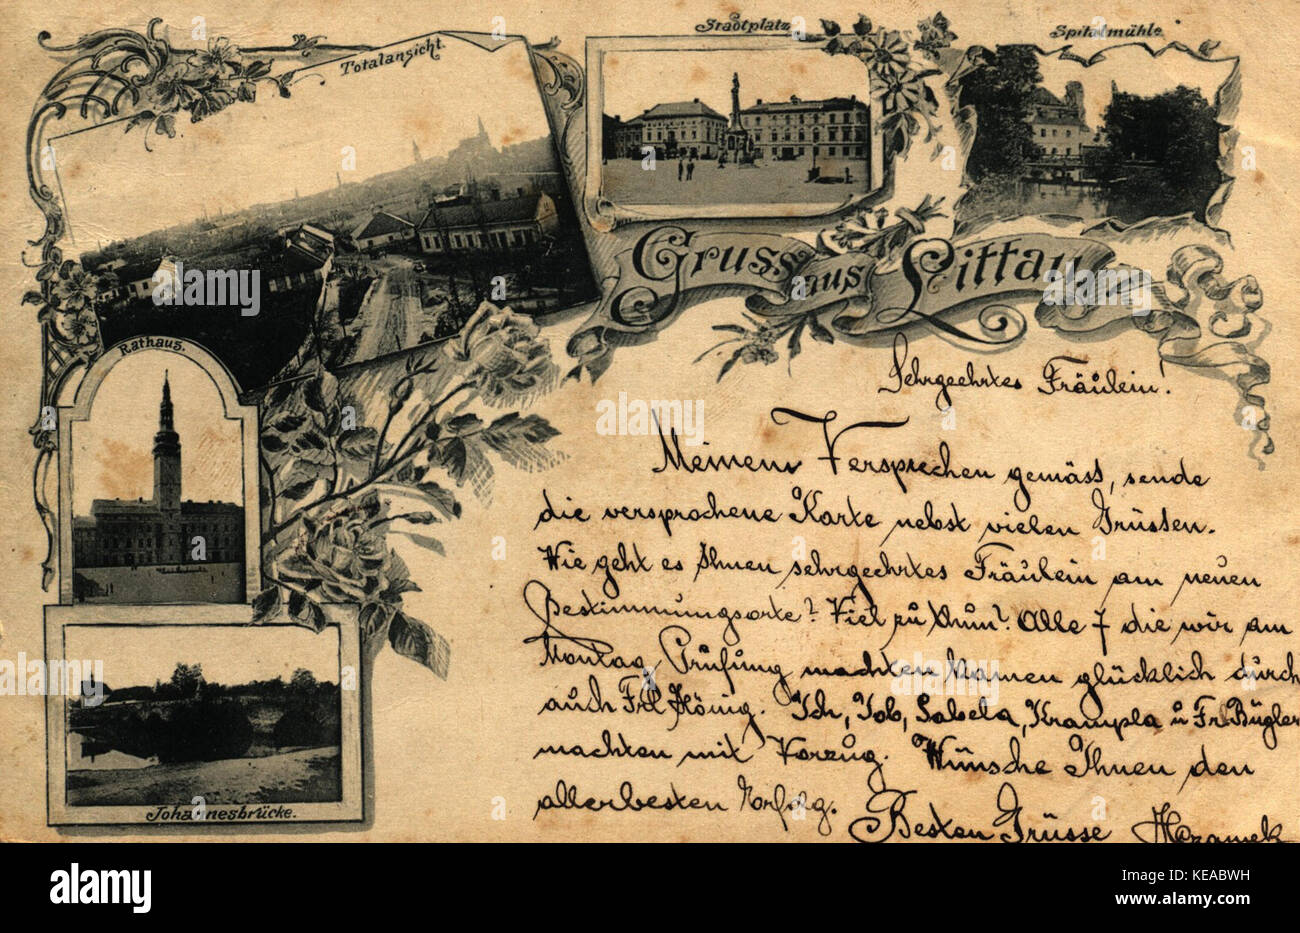 Totalansicht.
Stadtplatz
Spitalmühle
Gruss aus Littau
Rathaus.
Johannesbrücke.
Sehrgeehrtes Fräulein!
Meinem Versprechen gemäss, sende
die versprochene Karte nebst vielen Grüssen.
Wie geht es Ihnen sehrgeehrtes Fräulein am neuen
Bestimmungsorte? Viel zu thun? Alle 7 die wir am
Montag Prüfung machten kamen glücklich durch
auch Frl König. Ich, Job, Sabela, Krampla u Fr. Bügler
machten mit Vorzug. Wünsche Ihnen den
allerbesten Erfolg.
Besten Grüsse
alamy
Image ID: KEABWH
www.alamy.com